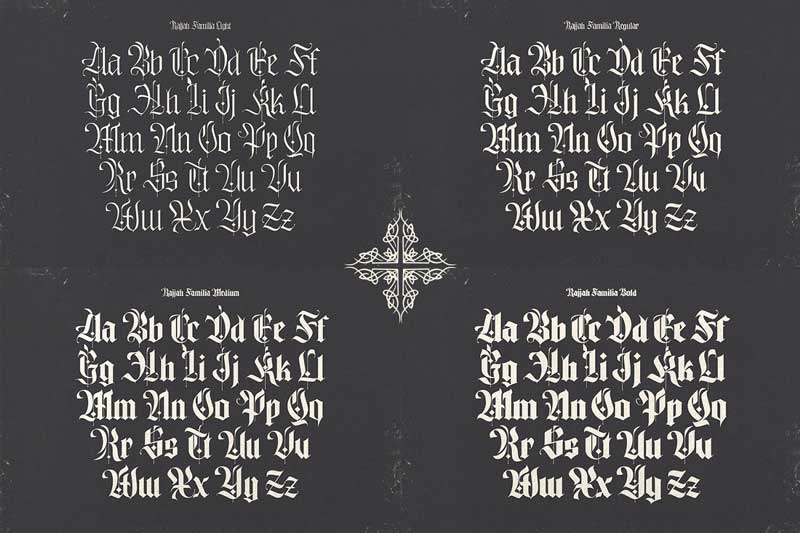 Rajjah Familia Light
Aa Bb Cc Dd Ee Ff
Gg Hh Ii Jj Kk Ll
Mm Nn Oo Pp Qq
Rr Ss Tt Uu Vv
Ww Xx Yy Zz
Rajjah Familia Regular
Aa Bb Cc Dd Ee Ff
Gg Hh Ii Jj Kk Ll
Mm Nn Oo Pp Qq
Rr Ss Tt Uu Vv
Ww Xx Yy Zz
Rajjah Familia Medium
Aa Bb Cc Dd Ee Ff
Gg Hh Ii Jj Kk Ll
Mm Nn Oo Pp Qq
Rr Ss Tt Uu Vv
Ww Xx Yy Zz
Rajjah Familia Bold
Aa Bb Cc Dd Ee Ff
Gg Hh Ii Jj Kk Ll
Mm Nn Oo Pp Qq
Rr Ss Tt Uu Vv
Ww Xx Yy Zz